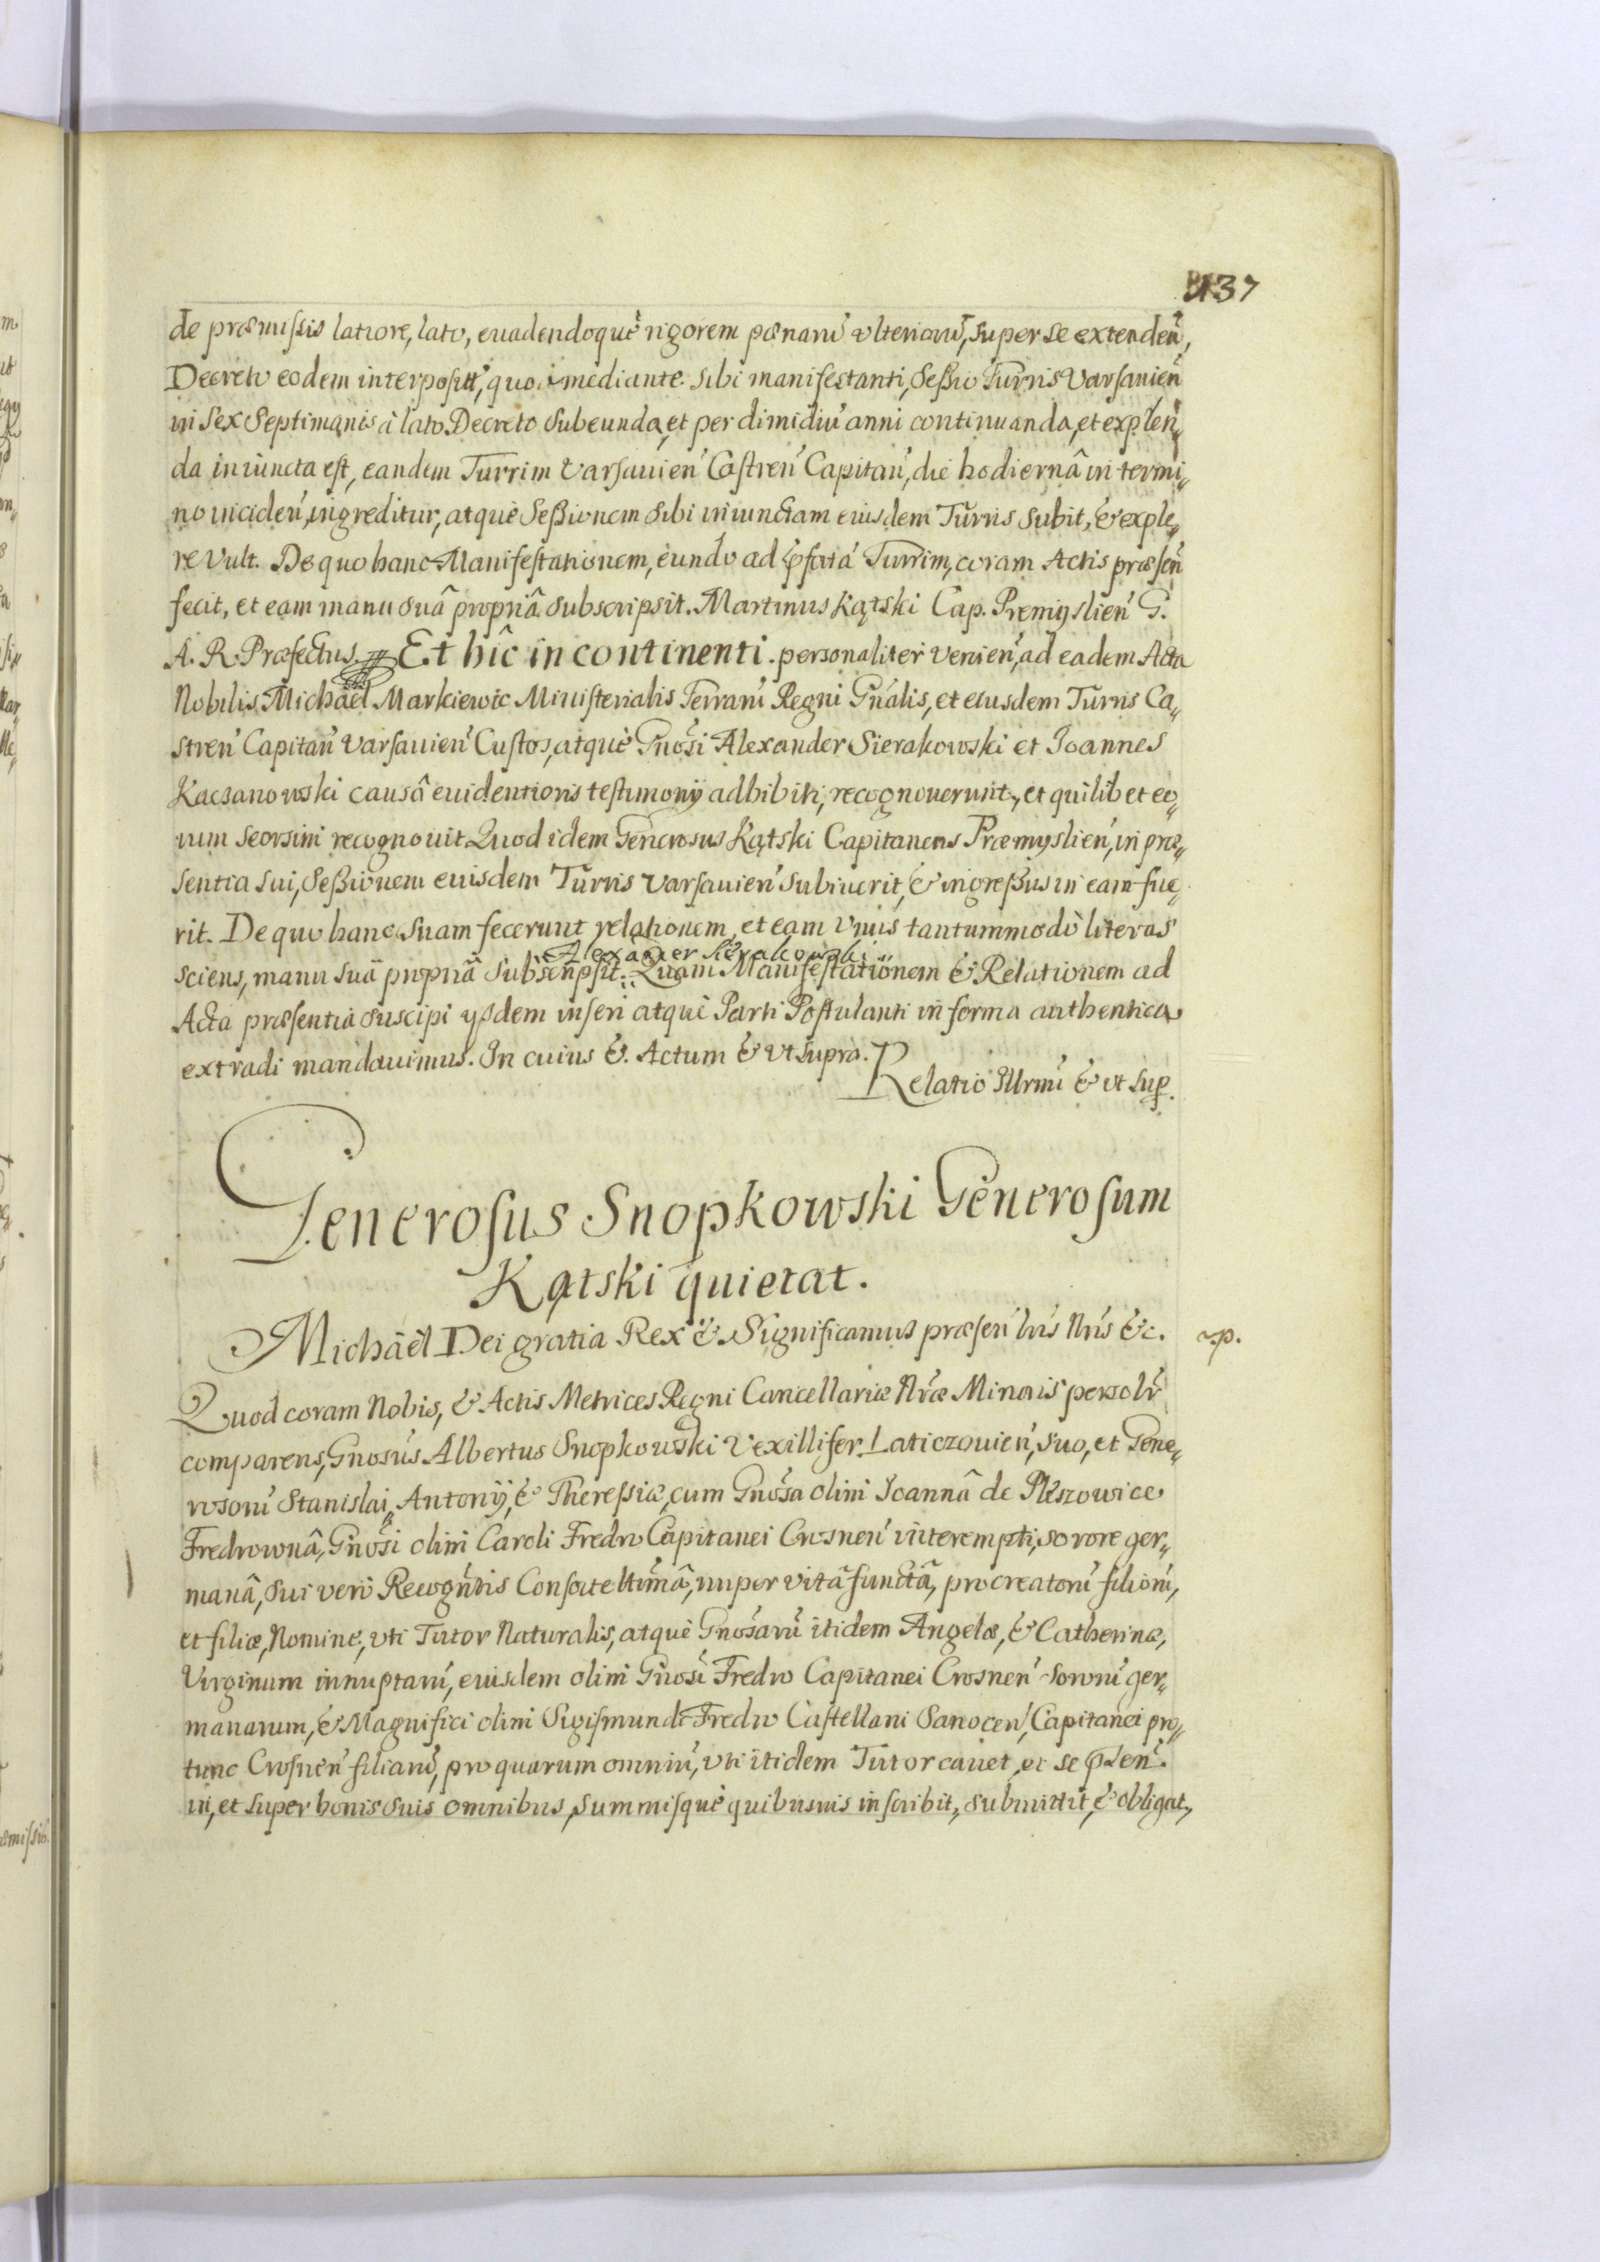 137
de præmissis latiore, lato, euadendoquè rigorem pœnarũ vlteriorũ, super se extendeñ,
Decreto eodem interposit', quo mediante sibi manifestanti, Sessio Turris Varsauień
in Sex Septimanis à lato Decreto subeunda, et per dimidiũ anni continuanda, et explen„
da iniuncta est, eandem Turrim Varsauień Castreń Capitań, die hodiernâ in termi„
no incideń, ingreditur, atquè Sessionem sibi iniunctam eiusdem Turris subit, & exple„
re vult. De quo hanc Manifestationem, eundo ad pfatá Turrim, coram Actis præseń
fecit, et eam manu suâ propriâ subscripsit. Martinus Kątski Cap. Premyslień G.
A. R. Præfectus. Et hîc in continenti. personaliter venień, ad eadem Acta
Nobilis Michaël Markiewic Ministerialis Terrarũ Regni Gñalis, et eiusdem Turris Ca„
streń Capitań Varsauień Custos, atquè Gnosi Alexander Sierakowski et Joannes
Kaczanowski causâ euidentioris testimonij adhibiti, recognouerunt, et quilibet eo„
rum seorsim recognouit Quod idem Generosus Kątski Capitaneus Præmyslień, in præ„
sentia sui, Sessionem eiusdem Turris Varsauień subiuerit, & ingressus in eam fue„
rit. De quo hanc suam fecerunt relationem, et eam vnus tantummodò literas
Alexander Sierakowski
sciens, manu suâ propriâ subscripsit. Quam Manifestationem & Relationem ad
Acta præsentia suscipi ijsdem inseri atquè Parti Postulanti in forma authentica
extradi mandauimus. In cuius &. Actum & vt supra.
Relatio Illrmi & vt sup.
Generosus Snopkowski Generosum
Kątski quietat.
Michaël Dei gratia Rex & Significamus præseń lris Nris &c.
Quod coram Nobis, & Actis Metrices Regni Cancellariæ Nræ Minoris persolr
comparens, Gnosus Albertus Snopkowski Vexillifer Laticzouień, suo, et Gene„
rosorũ Stanislai, Antonij, & Theressiæ, cum Gnosa olim Joannâ de Pleszowice
Fredrownâ, Gnosi olim Caroli Fredro Capitanei Crosneń interempti, sorore ger„
manâ, sui verò Recogntis Consorte ltimâ, nuper vitâ functâ, procreatorũ filiorũ,
et filiæ, Nomine, vti Tutor Naturalis, atquè Gnosarũ itidem Angelæ, & Catherinæ,
Virginum innuptarũ, eiusdem olim Gnosi Fredro Capitanei Crosneń Sororũ ger„
manarum, & Magnifici olim Sigismundi Fredro Castellani Sanoceń, Capitanei pro„
tunc Crosneń filiarũ, pro quarum omniũ, vti itidem Tutor cauet, et se
in, et super bonis suis omnibus, Summisquè quibusuis inscribit, submittit, & obligat,